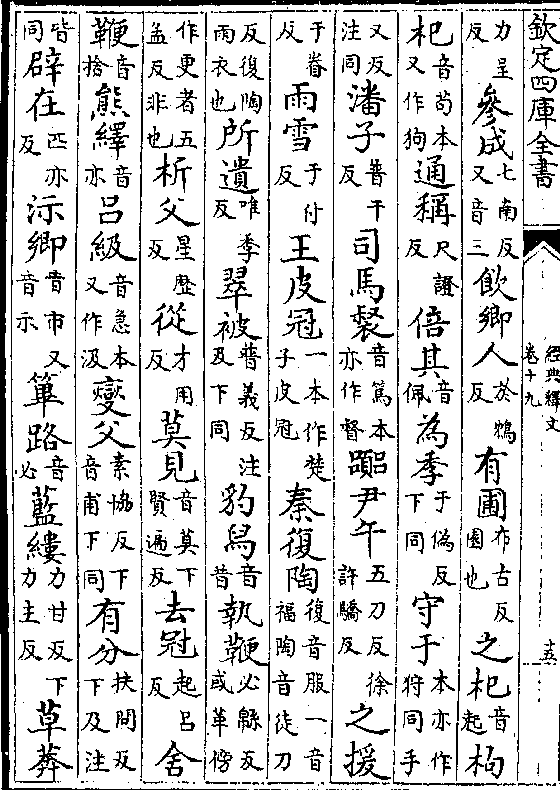 欽定四庫全書
經典釋文
卷十九
十五
力呈反參成七南反又音三飲鄉人於鴆反有圃布古反園也之杞音起枸
杞音苟本又作狗通稱尺證反倍其音佩為季于偽反下同守于本亦作狩同手
又反注同潘子普干反司馬裻音篤本亦作督嚻尹午五刀反徐許驕反之援
于眷反雨雪于付反王皮冠一本作楚子皮冠秦復陶復音服一音福陶音徒刀
反復陶雨衣也所遺唯季反翠被普義反注及下同豹舄音昔執鞭必緜反或革傍
作更者五孟反非也析父星歷反從才用反莫見音莫下賢遍反去冠起呂反舍
鞭音捨熊繹音亦呂級音急本又作汲燮父素協反下音甫下同有分扶問反下及注
皆同辟在匹亦反沶卿音市又音示篳路音必藍縷力甘反下力主反草莽